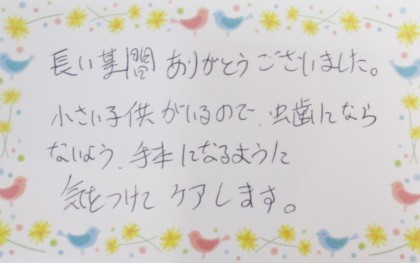 長い期間ありがとうございました。
小さい子供がいるので、虫歯になら
ないよう、手本になるように
気をつけてケアします。